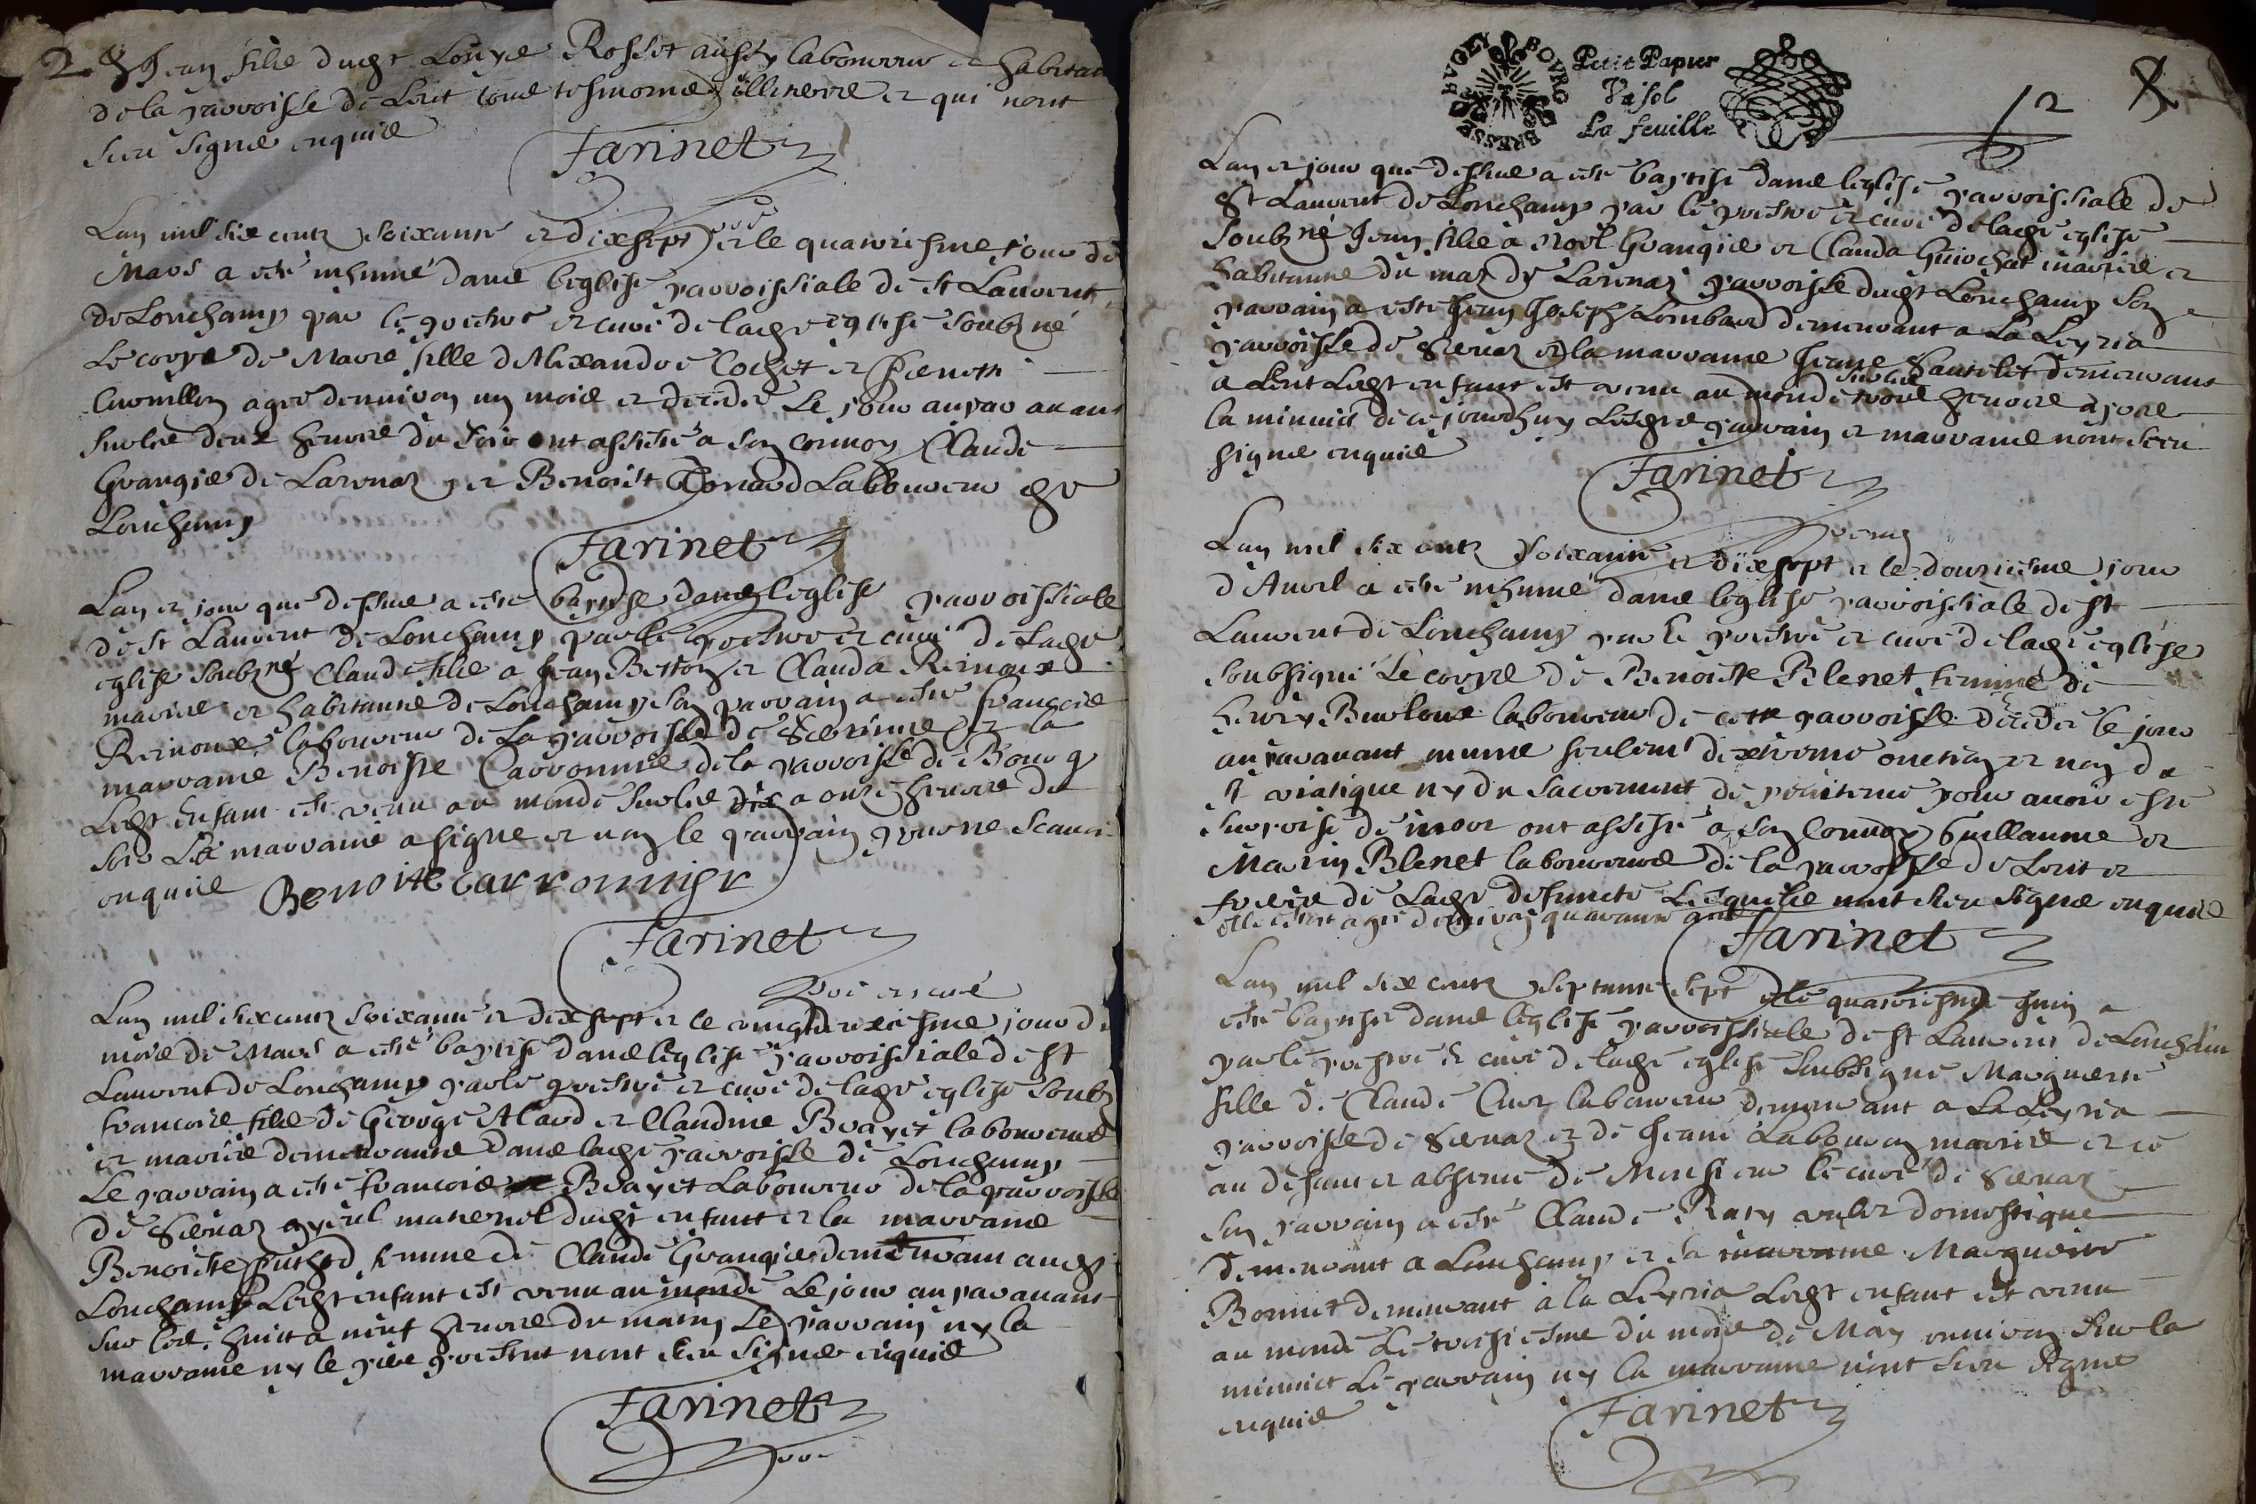 2 & Jean filz dudt Louys Rosset aussy laboureur et habitan
de la parroisse de Lent tous tesmoings illiteres et qui n'ont
sceu signer enquis
Farinet
Lan mil six centz soixante et dixsept et le quatorziesme jour de
Mars a esté inhumé dans leglise parroissiale de st Laurent
de Lonchamp par le prestre et curé de ladte eglise soubzné
Le corps de Marie fille d'Alexandre Cochet et Pienette
Cuvillon agée denviron un mois et decedée le jour auparavant
sur les deux heures du soir ont assisté a son convoy Claude
Grangie de Larenaz et Benoist Tonard Laboureur de
Lonchamp
Farinet
Lan et jour que dessus a esté baptisé dans l'eglise parroissiale
de st Laurent de Lonchamp par le prestre et curé de ladte
eglise soubzné Claude filz a Jean Betton et Clauda Reinoux
mariés et habitants de Lonchamp son parrain a esté françois
Reinoux laboureur de la parroisse de et la
marraine Benoiste Carronnier de la parroisse de Bourg
Ledt enfant est venu au monde sur les dix a onze heures du
soir La marraine a signé et non le parrain pour ne scavoir
enquis Benoite carronnier
Farinet
pbre et curé
Lan mil six centz soixante et dixsept et le vingtdeuxiesme jour du
mois de Mars a esté baptisé dans leglise parroissiale de st
Laurent de Lonchamp par le prestre et curé de ladte eglise soubz
françois filz de George Alard et Claudine Brayet laboureurs
et mariés demeurants dans ladte parroisse de Lonchamp
Le parrain a esté françois Brayet Laboureur de la parroisse
de Servaz ayeul maternel dudt enfant et la marraine
Benoiste femme de Claude Grangie demeurant audt
Lonchamp Ledt enfant est venu au monde Le jour auparavant
sur les huict a neuf heures du matin Le parrain ny la
marraine ny le pere present n'ont sceu signer enquis
Farinet
pbre
BVGEY BOVRG BRESSE
Petit Papier
Va 1 sol
La feuille
2
Lan et jour que dessus a esté baptisé dans leglise parroissiale de
st Laurent de Lonchamp par le prestre et curé de ladte eglise
soubzné Jean filz a Noel Grangie et Clauda Guichat mariés et
habitants du mas de Larenaz parroisse dudt Lonchamp Son
parrain a esté Jean Joseph Lombard demeurant a La Leyria
parroisse de Servaz et la marraine Jeane Sautelet demeurant
a Lent Ledt enfant est venu au monde sur les trois heures apres
la minuict de ce jourdhuy Lesdts parrain et marraine n'ont sceu
signer enquis
Farinet
Lan mil six centz soixante et dixsept et le douziesme jour
d'Avril a esté inhumé dans leglise parroissiale de st
Laurent de Lonchamp par le prestre et curé de ladte eglise
soubsigné Le corps de Benoiste Blenet femme de
henry Burloux laboureur de cette parroisse decedée le jour
auparavant munie seulemt dextreme onction et non du
st viatique ny du sacrement de penitence pour avoir esté
surprise de mort ont assisté a son convoy Guillaume et
Marin Blenet laboureurs de la parroisse de Lent et
freres de ladte defuncte Lesquels n'ont sceu signer enquis
elle estoit agée denviron quarante ans
Farinet
Lan mil six centz septante sept et le quatorziesme Juin a
esté baptisée dans leglise parroissiale de st Laurent de Lonchamp
par le prestre et curé de ladte eglise soubsigné Marguerite
fille de Claude Laboureur demeurant a La Leyria
parroisse de Servaz et de Jeane Labouron mariés et ce
au defaut et absence de Monsieur le curé de Servaz
son parrain a esté Claude Rary valet domestique
demeurant a Lonchamp et sa marraine Marguerite
Bonnet demeurant a la Leyria Ledt enfant est venu
au monde Le troisiesme du mois de May environ sur la
minuict Le parrain ny la marraine n'ont sceu signer
enquis
Farinet